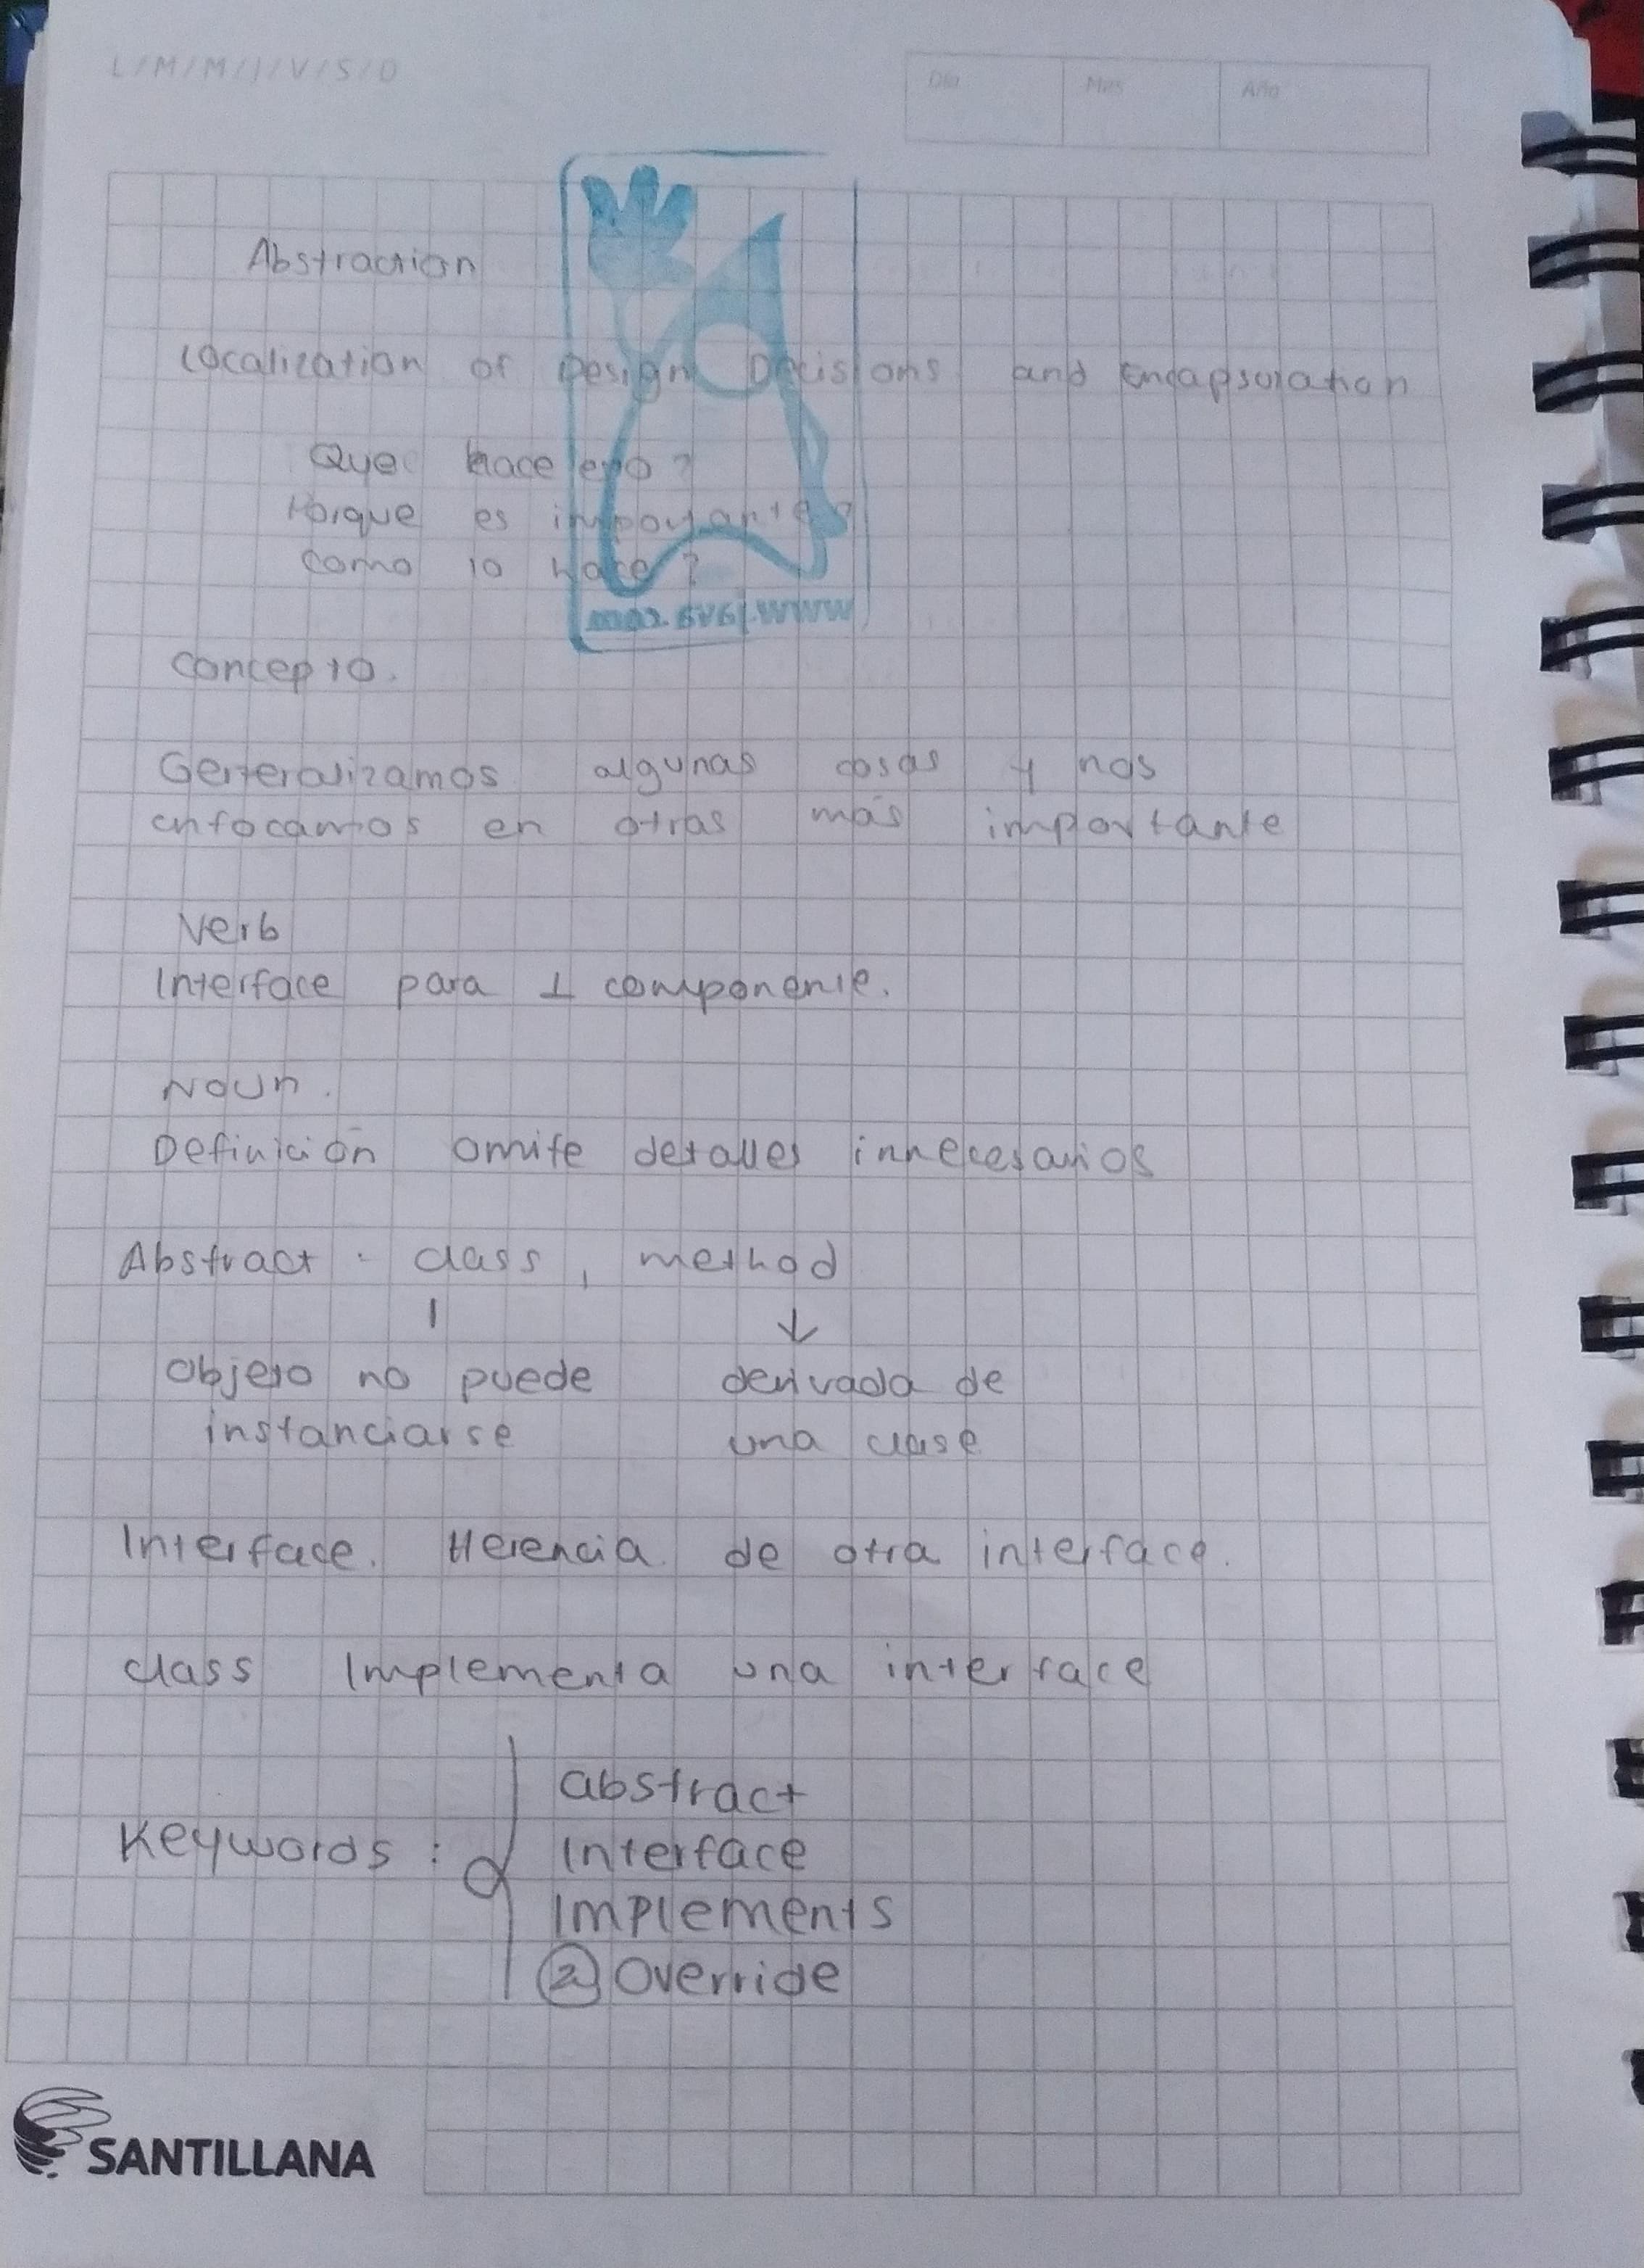 L/M/M/J/V/S/D
Día Mes Año
Abstraction
Localization of Design Decisions and Encapsulation
Que hace eso?
Porque es importante?
como lo hace?
www.java.com
concepto.
Generalizamos algunas cosas y nos
enfocamos en otras más importante
Verb
Interface para 1 componente.
Noun.
Definición omite detalles innecesarios
Abstract: class, method
Objeto no puede derivada de
instanciarse una clase
Interface. Herencia de otra interface.
class Implementa una interface
Keywords: abstract
Interface
Implements
@Override
SANTILLANA